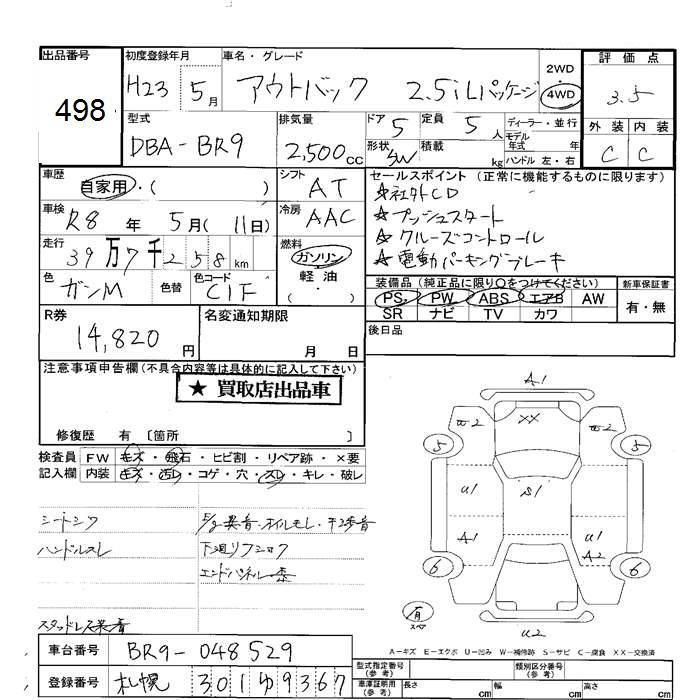 出品番号
498
初度登録年月
H23 5月
車名・グレード
アウトバック 2.5iLパッケージ
2WD
4WD
評価点
3.5
外装 内装
C C
型式
DBA-BR9
排気量
2,500cc
ドア 5
形状 SW
定員 5人
積載 kg
ディーラー・並行
モデル年式 年式
ハンドル 左・右
車歴
自家用・( )
シフト AT
車検
R8年 5月(11日)
冷房 AAC
走行
39万7千258km
燃料
ガソリン
軽油
( ・ )
色
ガンM
色替
色コード
C1F
セールスポイント (正常に機能するものに限ります)
☆社外CD
☆プッシュスタート
☆クルーズコントロール
☆電動パーキングブレーキ
装備品 (純正品に限り○をつけてください)
PS PW ABS エアB AW
SR ナビ TV カワ
新車保証書
有・無
R券
14,820円
名変通知期限
月 日
後日品
注意事項申告欄(不具合内容等は具体的に記入して下さい)
★ 買取店出品車
修復歴 有 〔箇所 〕
検査員記入欄
FW キズ・飛石・ヒビ割・リペア跡・×要
内装 キズ・汚レ・コゲ・穴・スレ・キレ・破レ
シートシワ
ハンドルスレ
E/g異音・オイルモレ・
下廻リフショク
エンドパネル
スタッドレス
A1
XX
5
5
U1
S1
A1
U1
A2
6
6
有
スペア
U2
A-キズ E-エクボ U-凹み W-補修跡 S-サビ C-腐食 XX-交換済
車台番号
BR9-048529
登録番号
札幌 301 ゆ 9367
型式指定番号
(参考)
類別区分番号
(参考)
車庫証明用
(参考)
長さ cm
幅 cm
高さ cm